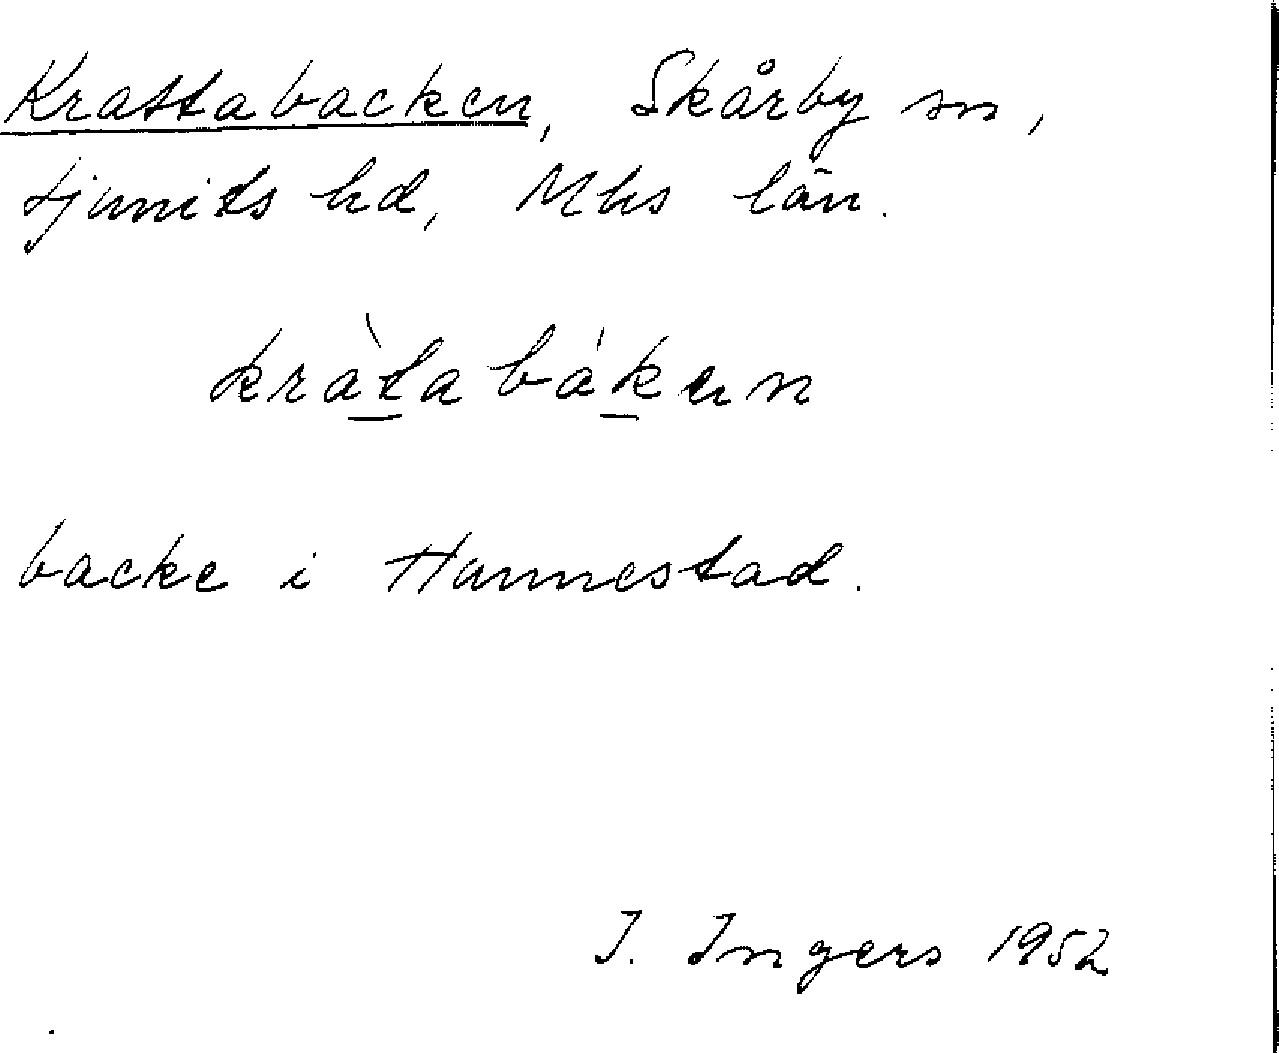 Krattabacken, Skårby sn,
Ljunits hd, Mhs län.
kràta bákạn
backe i Hunnestad.
I. Ingers 1952